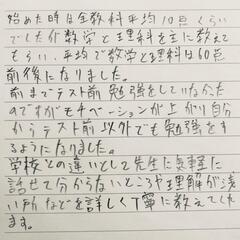 始めた時は全教科平均10点くらい
でしたが数学と理科を主に教えて
もらい、平均で数学と理科は60点
前後になりました。
前までテスト前勉強をしていなかった
のですがモチベーションが上がり自分
からテスト前以外でも勉強をす
るようになりました。
学校との違いとして先生に気軽に
話せて分からないところや理解が浅
い所などを詳しく丁寧に教えてくれ
ます。